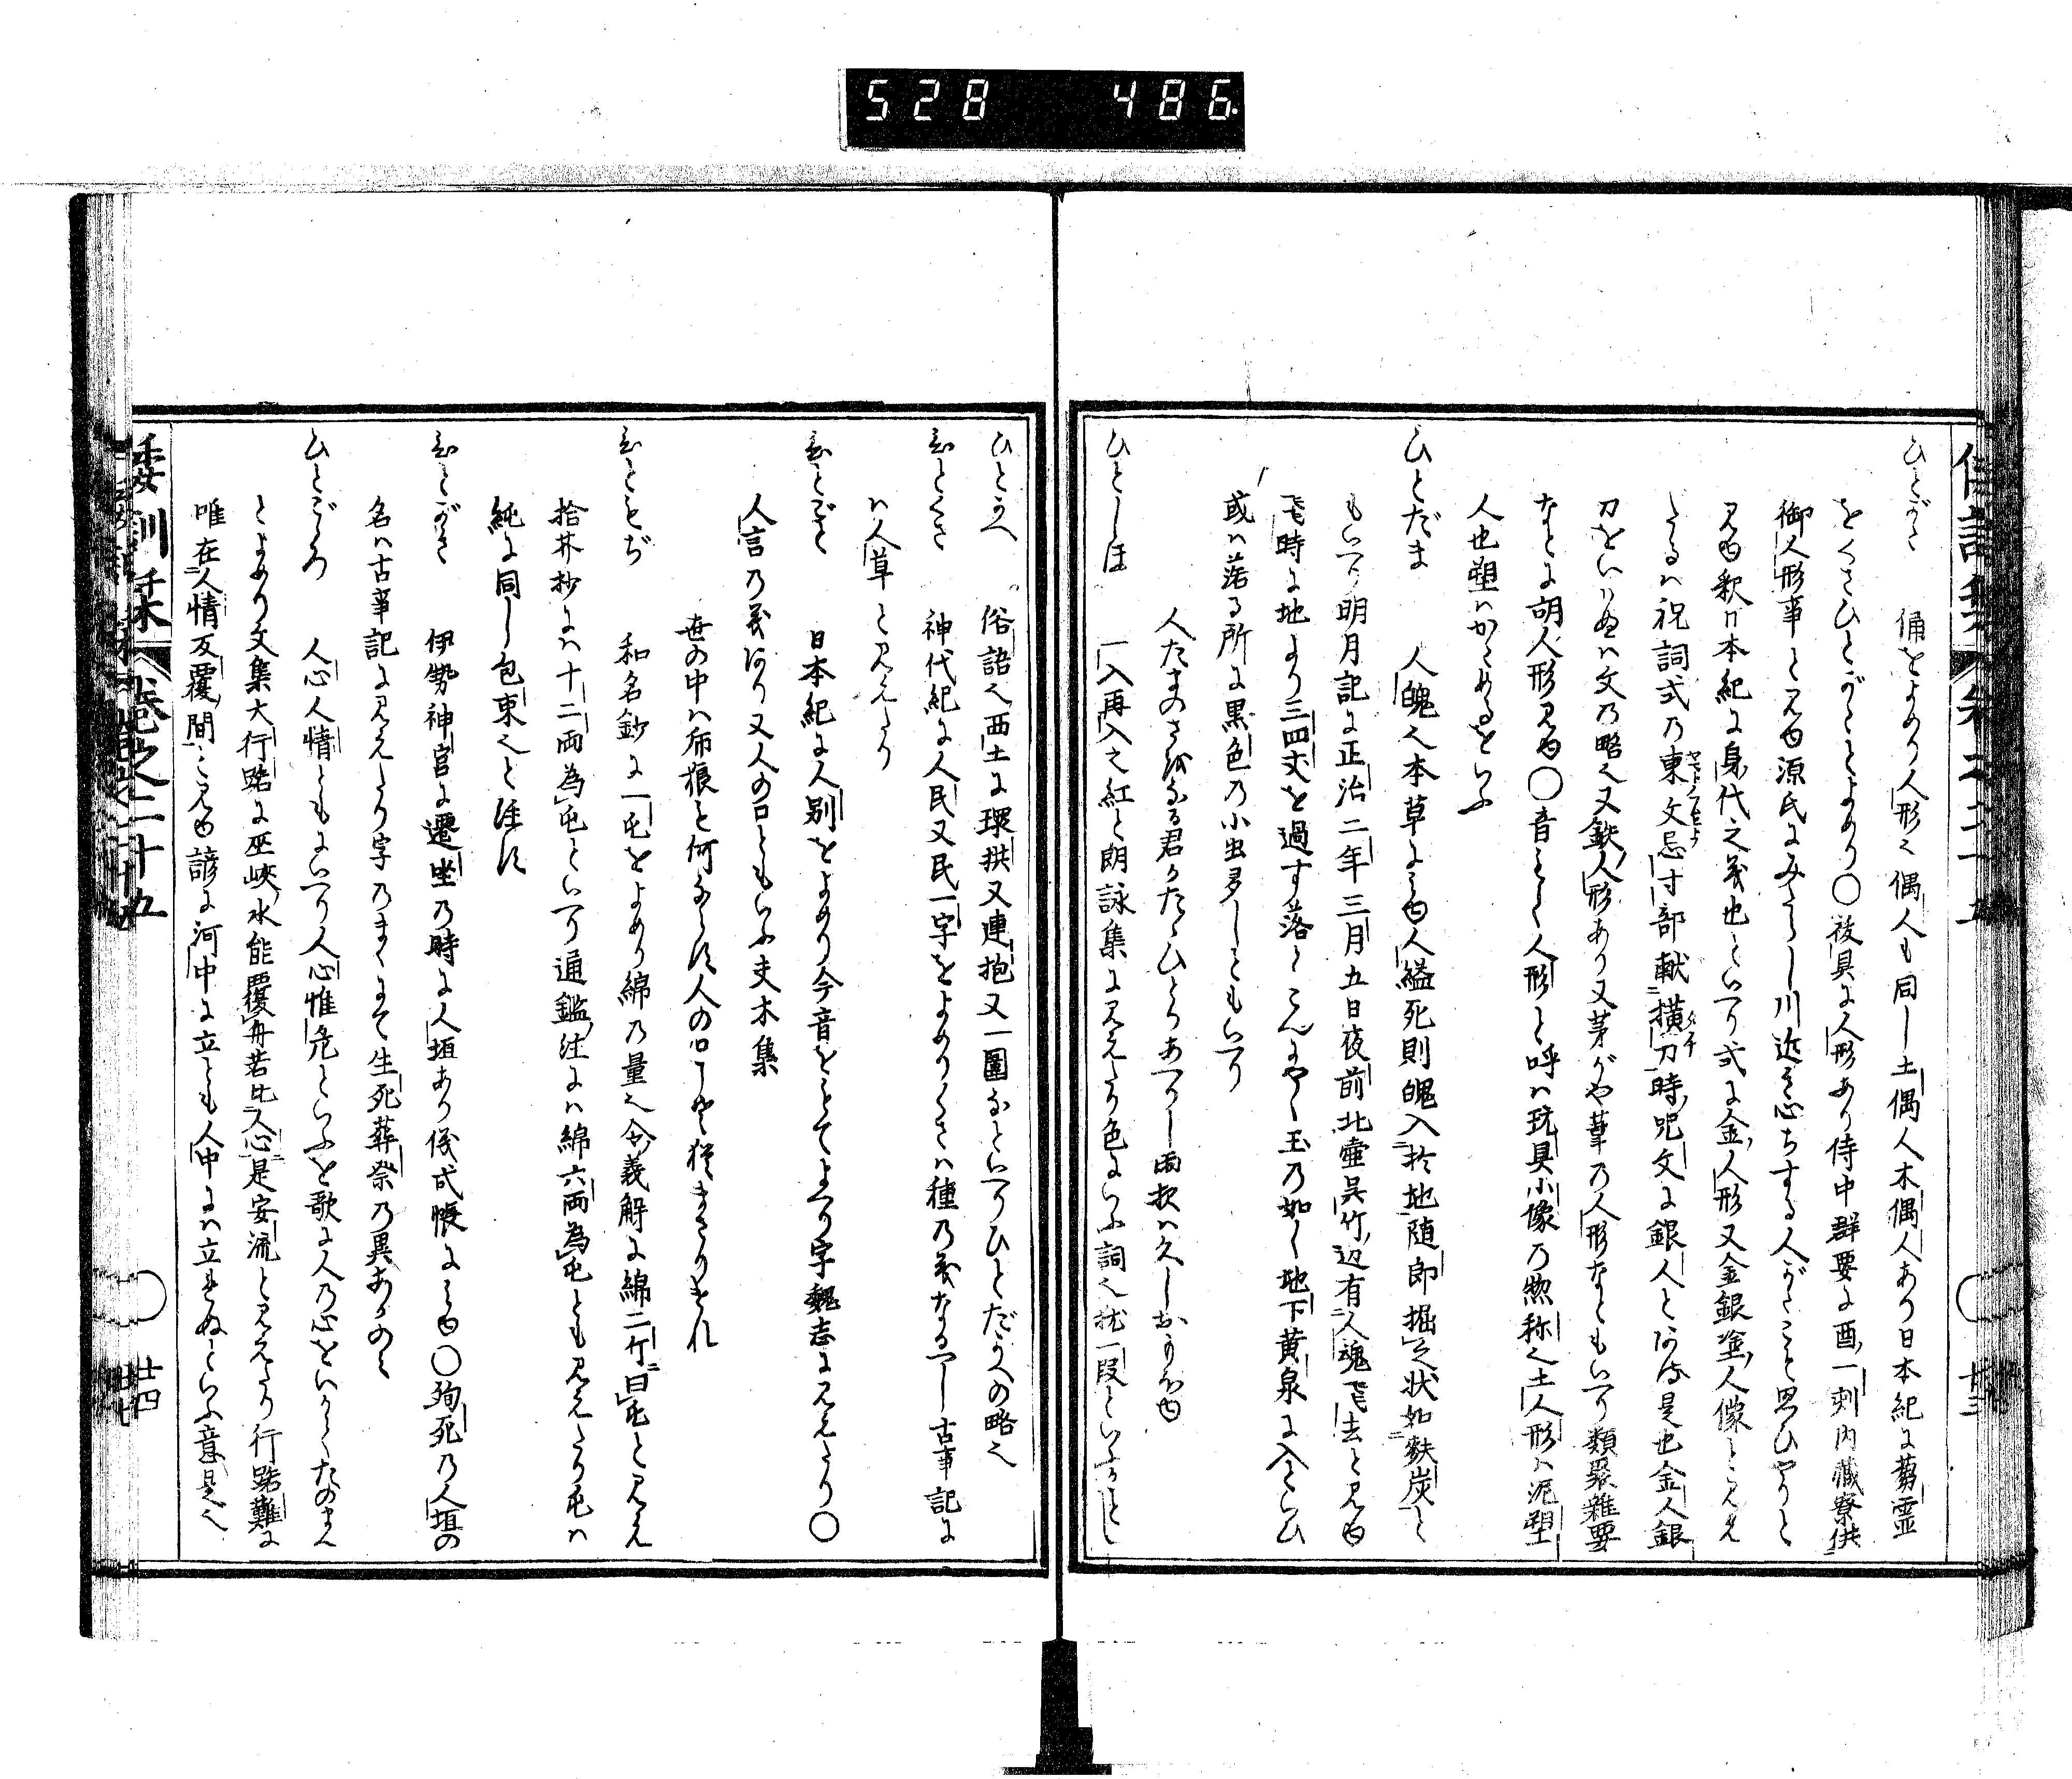 528 486
ひとがた 俑をよめり人形之偶人も同し土偶人木偶人あり日本紀に蒭霊
をくさひとがたとよめり○後具に人形あり侍中群要に酉一刻内蔵寮供
御人形事と見ゆ源氏にみたらし川近き心ちする人がたこそ思ひやりと
見ゆ釈日本紀に身代之義也といへり式に金人形又金銀塗人像とこみえ
たるハ祝詞式乃東文忌寸部献横刀時呪文に銀人とあるは是也金人銀
刀をいハぬハ文乃略之又鉄人形あり又茅がや葦乃人形なともいへり類聚雑要
なとに胡人形見ゆ○音もて人形と呼ハ玩具小像乃惣称之土人形ハ泥塑
人也塑ハかためるをいふ
ひとだま 人魄之本草にミゆ人縊死則魄入於地随即掘之状如麩炭と
もいへり明月記に正治二年三月五日夜前北壷呉竹辺有人魂飛去と見ゆ
飛時に地より三四丈を過す落てこんにやく玉乃如く地下黄泉に入といひ
或ハ落る所に黒色乃小虫多しともいへり
人たまのさをなる君かたゝひとりあへりし雨夜ハ久しおもほゆ
ひとしほ 一入再入之紅と朗詠集に見えたり色にいふ詞之扨一段といふかことし
ひとかへ 俗語之西土に環拱又連抱又一圍なといへりひとだかへの略之
ひとくさ 神代紀に人民又民一字をよめりくさハ種乃義なるへし古事記に
ハ人草と見えたり
ひとごと 日本紀に人別をよめり今音をもてよへり字魏志に見えたり○
人言乃義あり又人の口ともいふ夫木集
世の中ハ虎狼も何ならす人の口こそ猶まさりけれ
ひともぢ 和名鈔に一屯をよめり綿乃量之令義解に綿二斤曰屯と見え
拾芥抄にハ十二両為屯といへり通鑑注にハ綿六両為屯とも見えたり屯ハ
純に同し包束之と注す
ひとがき 伊勢神宮に遷坐乃時に人垣あり儀式帳にミゆ○殉死乃人垣の
名ハ古事記に見えたり字乃まゝにて生死葬祭乃異あるのミ
ひとごころ 人心人情ともにいへり人心惟危といふを歌に人乃心をいかゝたのまん
とよめり文集大行路に巫峡水能覆舟若比人心是安流と見えたり行路難に
唯在人情反覆間とミゆ諺に河中に立とも人中にハ立れぬといふ意是之
倭訓栞 巻之二十五
廿四